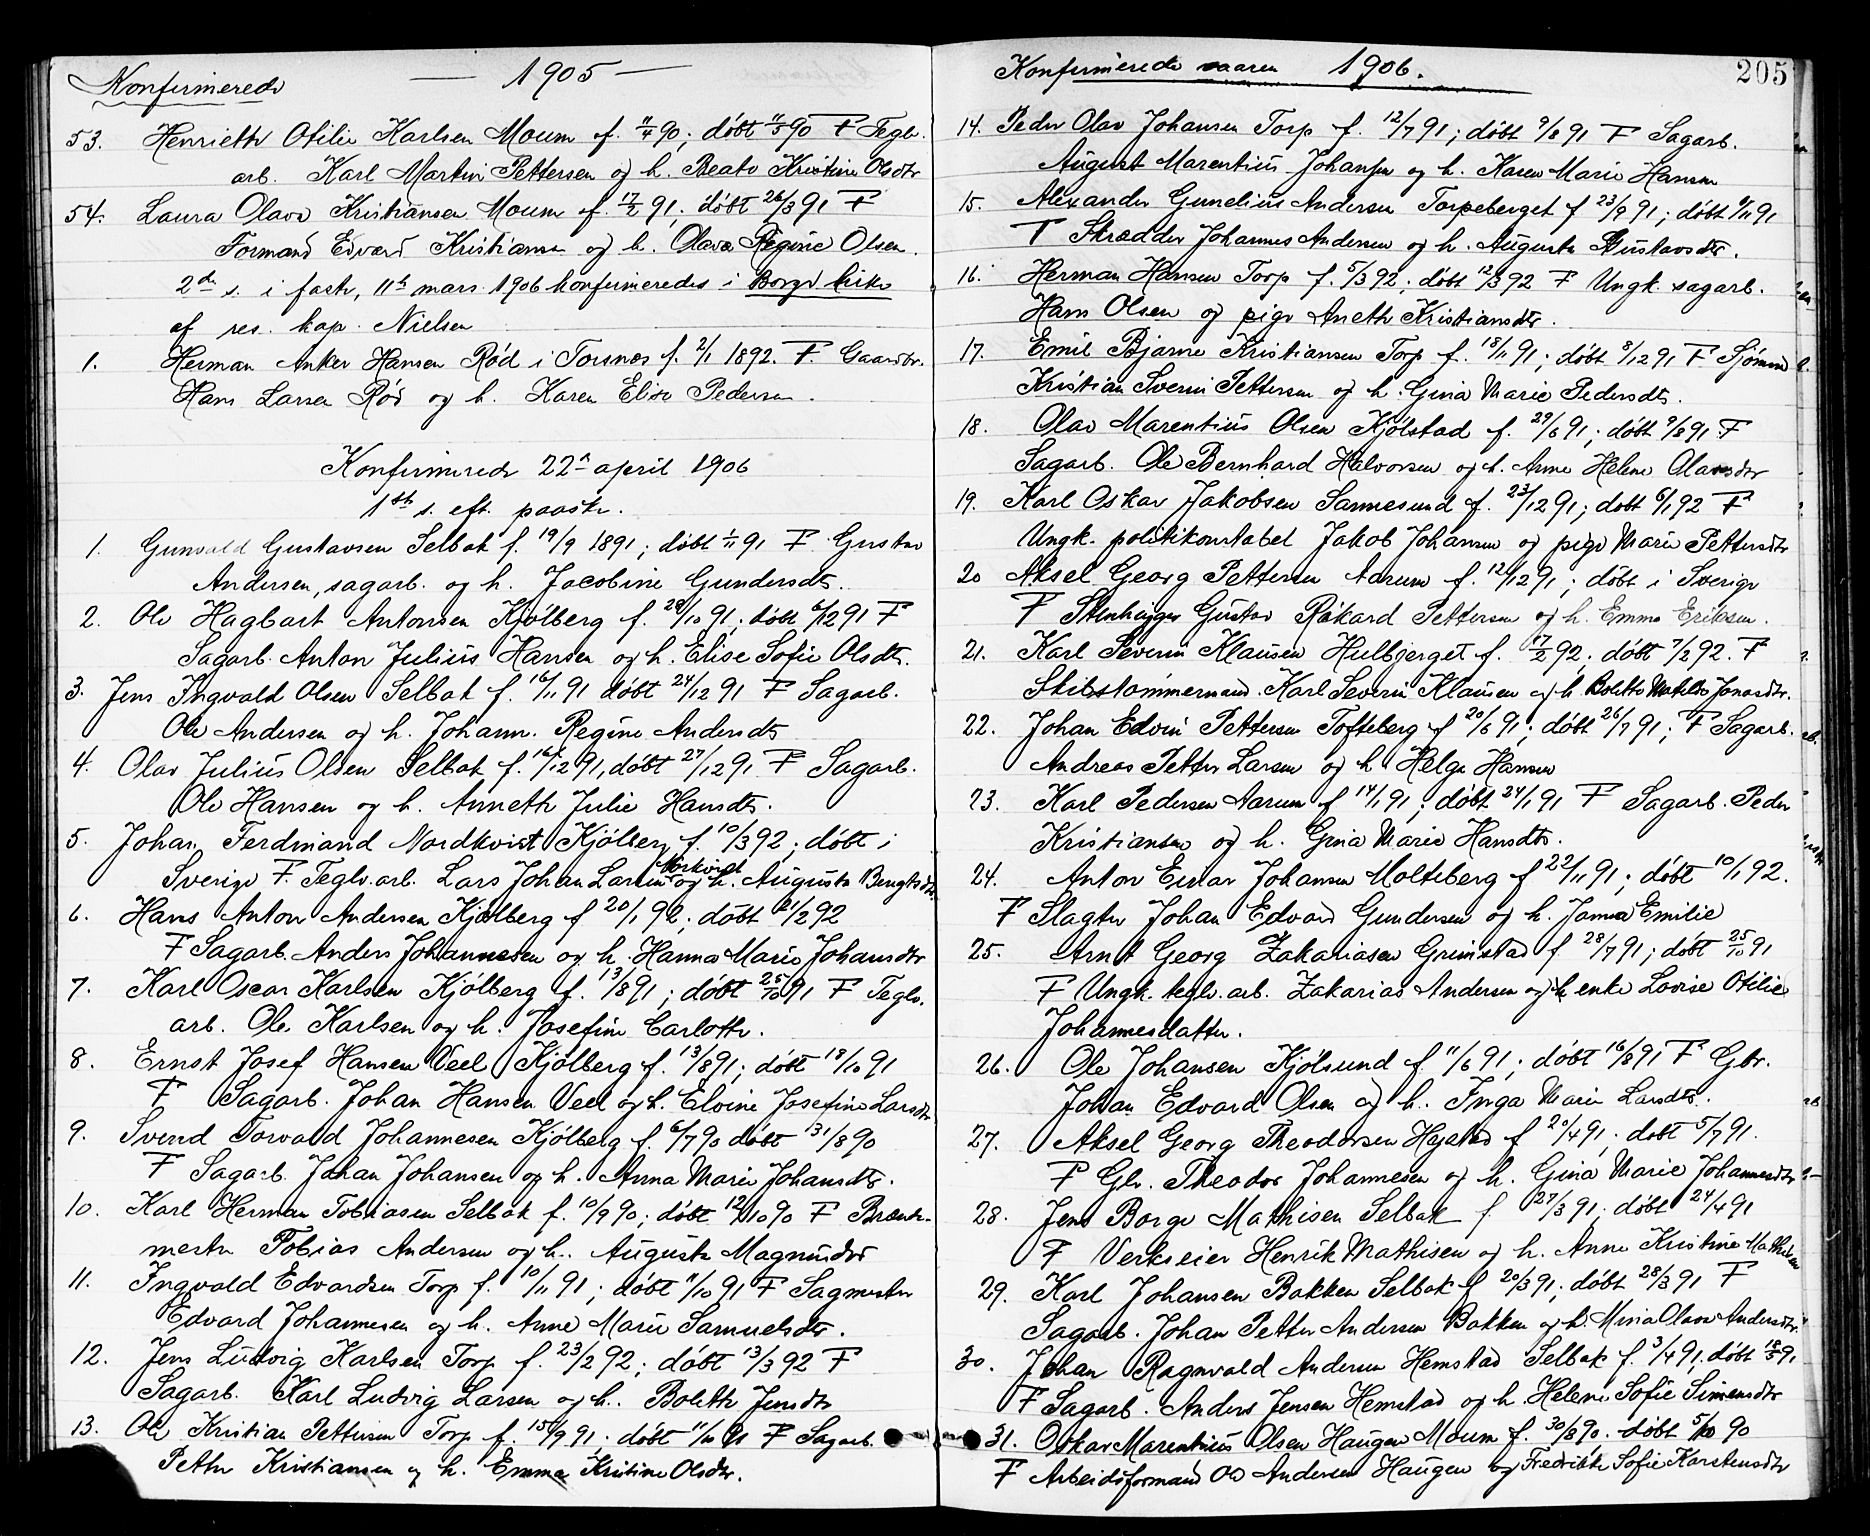 Konfirmerede — 1905 —
53. Henriette Otilie Karlsen Moum f. 11/4 90; døbt 11/5 90 F Teglv.
arb. Karl Martin Pettersen og h. Beate Kristine Olsdtr
54. Laura Olava Kristiansen Moum f. 17/2 91; døbt 26/3 91 F
Formand Edvard Kristiansen og h. Olava Regine Olsen.
2den s. i faste, 11te mars 1906 konfirmeredes i Borge kirke
af res. kap. Nielsen
1. Herman Anker Hansen Rød i Torsnæs f. 2/1 1892. F. Gaardbr.
Hans Larsen Rød og h. Karen Elise Pedersen.
Konfirmerede 22de april 1906
1ste s. eft. paaske.
1. Gunvald Gustavsen Selbak f. 19/9 1891; døbt 1/11 91 F Gustav
Andersen, sagarb. og h. Jacobine Gundersdtr.
2. Ole Hagbart Antonsen Kjölberg f. 28/10 91; døbt 6/12 91 F
Sagarb. Anton Julius Hansen og h. Elise Sofie Olsdtr.
3. Jens Ingvald Olsen Selbak f. 16/11 91 døbt 24/12 91 F Sagarb.
Ole Andersen og h. Johanne Regine Andersdtr
4. Olav Julius Olsen Selbak f. 16/12 91, døbt 27/12 91 F Sagarb.
Ole Hansen og h. Annette Julie Hansdtr.
5. Johan Ferdinand Nordkvist Kjölberg f. 10/3 92; døbt i
Sverige F. Teglv.arb. Lars Johan Larsen Norkvist og h. Augusta Bengtsdtr.
6. Hans Anton Andersen Kjølberg f 20/1 92; døbt 21/2 92
F Sagarb. Anders Johannesen og h. Hanna Marie Johansdtr
7. Karl Oscar Karlsen Kjölberg f. 13/8 91; døbt 25/10 91 F Teglv.
arb. Ole Karlsen og h. Josefine Carlotte.
8. Ernst Josef Hansen Veel Kjölberg f. 13/8 91; døbt 18/10 91
F Sagarb. Johan Hansen Veel og h. Elvine Josefine Larsdtr
9. Svend Torvald Johannesen Kjölberg f. 6/7 90 døbt 31/8 90
F Sagarb. Johan Johansen og h. Anna Marie Johansdtr.
10. Karl Herman Tobiasen Selbak f. 10/9 90; døbt 12/10 90 F Brænd-
mester Tobias Andersen og h. Augusta Magnusdtr
11. Ingvald Edvardsen Torp f. 10/11 91; døbt 11/10 91 F Sagmester
Edvard Johannesen og h. Anne Marie Samuelsdtr.
12. Jens Ludvig Karlsen Torp f. 23/2 92; døbt 13/3 92 F
Sagarb. Karl Ludvig Larsen og h. Bolette Jensdtr
13. Ole Kristian Pettersen Torp f. 15/9 91; døbt 11/10 91 F Sagarb.
Petter Kristiansen og h. Emma Kristine Olsdtr.
Konfirmerede vaaren 1906. 205
14. Peder Olav Johansen Torp f. 12/7 91; døbt 9/8 91 F Sagarb.
August Marentius Johansen og h. Karen Marie Hansen
15. Alexander Gunelius Andersen Torpeberget f 23/9 91; døbt 1/11 91
F Skrædder Johannes Andersen og h. Augusta Gustavsdtr.
16. Herman Hansen Torp f. 5/3 92; døbt 12/3 92 F Ungk. sagarb.
Hans Olsen og pige Anethe Kristiansdtr.
17. Emil Bjarne Kristiansen Torp f. 18/11 91; døbt 8/12 91 F. Sjömand
Kristian Sverin Pettersen og h. Gina Marie Pedersdtr.
18. Olav Marentius Olsen Kjölstad f. 29/6 91; døbt 9/8 91 F
Sagarb. Ole Bernhard Halvorsen og h. Anne Helene Olavsdtr
19. Karl Oskar Jakobsen Sannesund f. 23/12 91; døbt 6/1 92 F
Ungk. politikonstabel Jakob Johansen og pige Marie Pettersdtr
20 Aksel Georg Pettersen Aarum f. 12/12 91; døbt i Sverige
F Stenhugger Gustav Rikard Pettersen og h. Emma Eriksen.
21. Karl Severin Klausen Hulbjerget f. 17/2 92. døbt 7/2 92. F
Skibstømmermand Karl Severin Klausen og h Bolette Matilde Jonasdtr.
22. Johan Edvin Pettersen Tofteberg f 20/6 91; døbt 26/7 91; F Sagarb.
Andreas Petter Larsen og h Helga Hansen
23. Karl Pedersen Aarum f 14/1 91; døbt 24/1 91 F Sagarb. Peder
Kristiansen og h. Gina Marie Hansdtr.
24. Anton Einar Johansen Molteberg f 22/11 91; døbt 10/1 92.
F Slagter Johan Edvard Gundersen og h. Janna Emilie
25. Arnt Georg Zakariasen Grimstad f 28/7 91; døbt 25/10 91
F Ungk. teglv. arb. Zakarias Andersen og enke Lovise Otilie
Johannesdatter.
26. Ole Johansen Kjölsund f 11/6 91; døbt 16/8 91 F Gbr.
Johan Edvard Olsen og h. Inga Marie Larsdtr.
27. Aksel Georg Theodorsen Hystad f 20/4 91; døbt 5/7 91.
F Gbr. Theodor Johannesen og h. Gina Marie Johannesdtr
28. Jens Borge Mathisen Selbak f 27/3 91; døbt 24/4 91
F Verkseier Henrik Mathisen og h. Anne Kristine Mathisen
29. Karl Johansen Bakken Selbak f 20/3 91; døbt 28/3 91 F
Sagarb. Johan Petter Andersen Bakken og h. Mina Olava Andersdtr.
30. Johan Ragnvald Andersen Hemstad Selbak f. 3/4 91. døbt 18/5 91
F Sagarb. Anders Jensen Hemstad og h Helene Sofie Simensdtr
31. Oskar Marentius Olsen Haugen Moum f. 30/8 90. døbt 5/10 90
F Arbeidsformand Ole Andersen Haugen og Fredrikke Sofie Karstensdtr